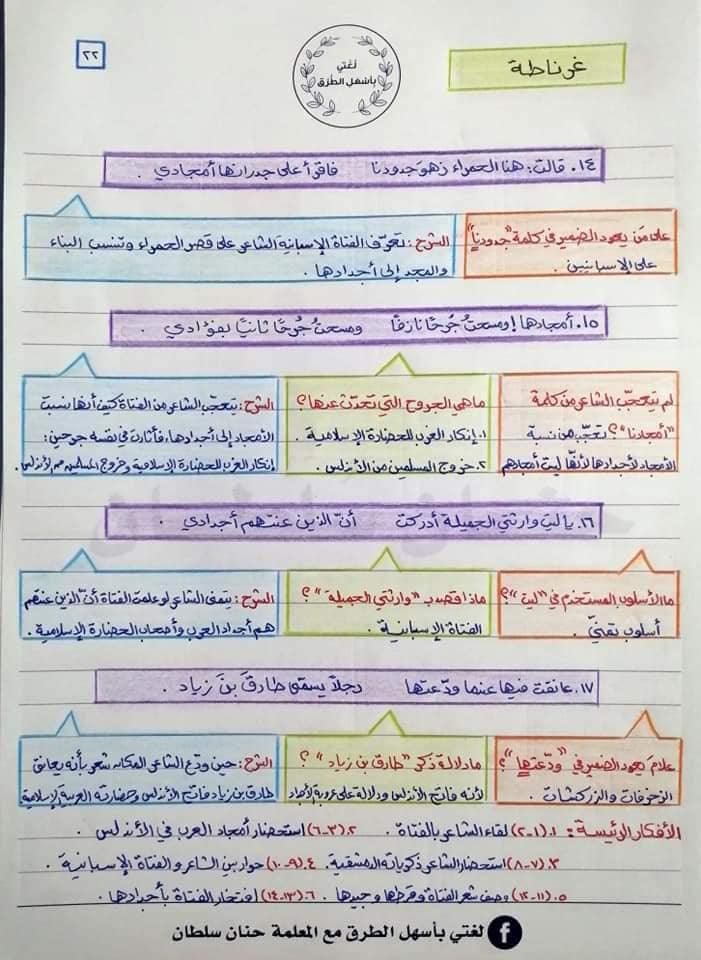 غرناطة
لغتي
بأسهل الطرق
٢٢
١٤. قالت: هنا الحمراء زهو جدودنا فاقرأ على جدرانها أمجادي .
على من يعود الضمير في كلمة "جدودنا"
على الإسبانيين .
الشرح: تعرّف الفتاة الإسبانية الشاعر على قصر الحمراء وتنسب البناء
والمجد إلى أجدادها .
١٥. أمجادها! ومسحتُ جُرحًا نازفًا ومسحتُ جُرحًا ثانيًا بفؤادي .
لم تعجّب الشاعر من كلمة
"أمجادنا"؟ تعجّب من نسبة
الأمجاد لأجدادها لأنّها ليست أمجادهم
ما هي الجروح التي تحدّث عنها؟
١. إنكار الغرب للحضارة الإسلامية .
٢. خروج المسلمين من الأندلس .
الشرح: يتعجّب الشاعر من الفتاة كيف أنها نسبت
الأمجاد إلى أجدادها، فأثارت في نفسه جرحين:
إنكار الغرب للحضارة الإسلامية وخروج المسلمين من الأندلس.
١٦. يا ليت وارثتي الجميلة أدركت أنّ الذين عنتهم أجدادي .
ما الأسلوب المستخدم في "ليت"؟
أسلوب تمنّي .
ماذا قصد ب "وارثتي الجميلة"؟
الفتاة الإسبانية .
الشرح: يتمنى الشاعر لو علمت الفتاة أنّ الذين عنتهم
هم أجداد العرب وأصحاب الحضارة الإسلامية .
١٧. عانقت فيها عندما ودّعتها رجلاً يسمّى طارقَ بنَ زياد .
علامَ يعود الضمير في "ودّعتها"؟
الزخرفات والزركشات .
ما دلالة ذكر "طارق بن زياد"؟
لأنه فاتح الأندلس ودلالة على عروبة الأمجاد
الشرح: حين ودّع الشاعر المكان شعر بأنه يعانق
طارق بن زياد فاتح الأندلس وحضارته العربية الإسلامية.
الأفكار الرئيسة: ١. (١-٢) لقاء الشاعر بالفتاة . ٢. (٣-٦) استحضار أمجاد العرب في الأندلس .
٣. (٧-٨) استحضار الشاعر ذكرياته الدمشقية . ٤. (٩-١٠) حوار بين الشاعر و الفتاة الإسبانية .
٥. (١١-١٢) وصف شعر الفتاة وقرطها وجيدها . ٦. (١٣-١٤) افتخار الفتاة بأجدادها .
لغتي بأسهل الطرق مع المعلمة حنان سلطان